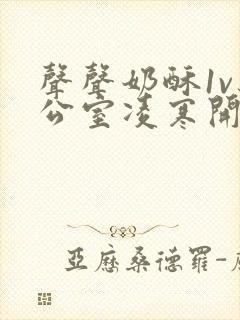 聲聲奶酥1v
公室凌寒開
亞歷桑德羅-